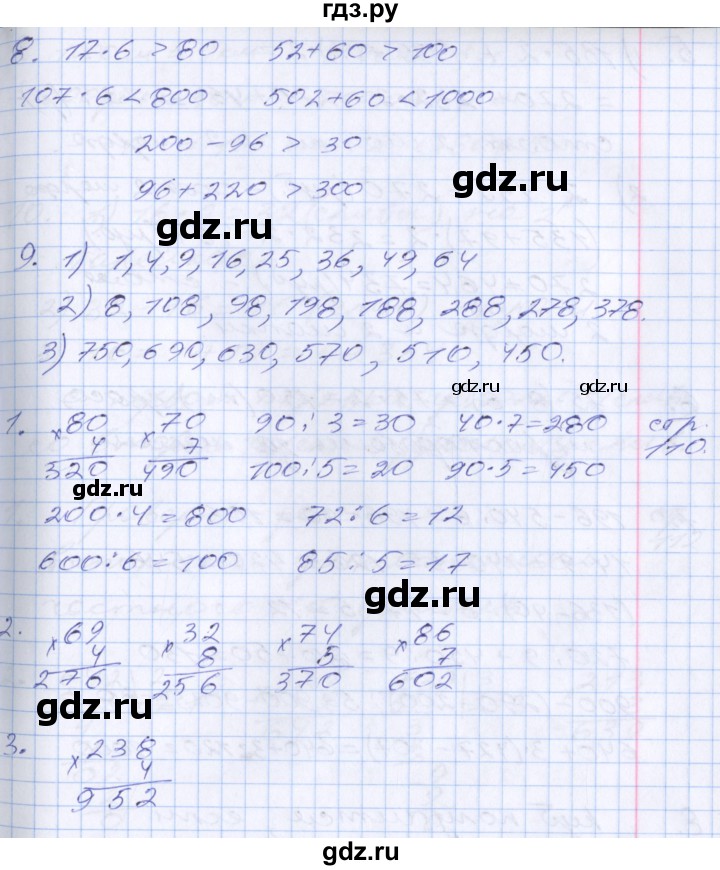 гдз.ру
8. 17·6 > 80    52+60 > 100
107·6 < 800    502+60 < 1000
200 − 96 > 30
gdz.ru
96 + 220 > 300
gdz.ru
9. 1) 1, 4, 9, 16, 25, 36, 49, 64
2) 8, 108, 98, 198, 188, 288, 278, 378.
3) 750, 690, 630, 570, 510, 450.
gdz.ru    gdz.ru
1. ×80    ×70    90:3=30    40·7=280    стр.
4    7    110.
320    490    100:5=20    90·5=450
gdz.ru
200·4=800    72:6=12
600:6=100    85:5=17
gdz.ru
2. ×69    ×32    ×74    ×86
4    8    5    7
276    256    370    602
gdz.ru
3. ×238
4
952
gdz.ru    gdz.ru
gdz.ru